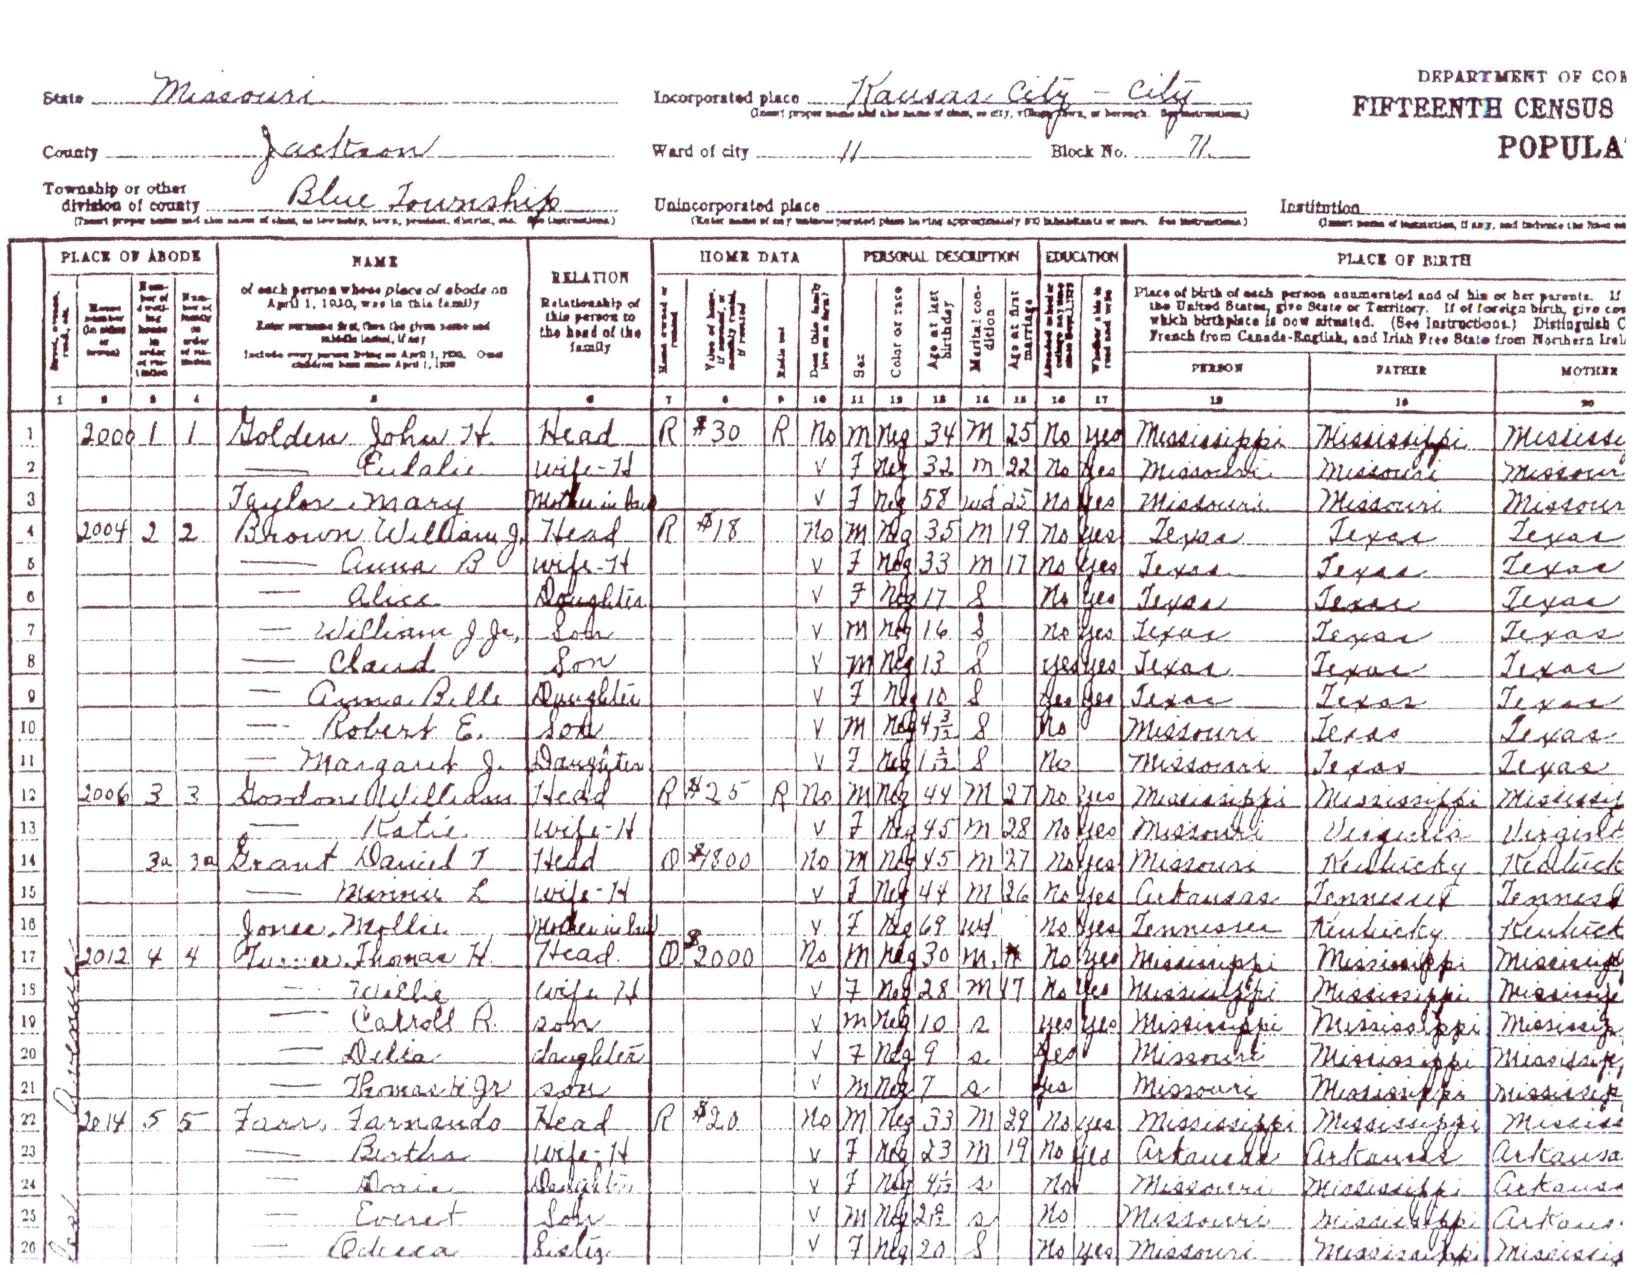 DEPARTMENT OF COM
State Missouri Incorporated place Kansas City - City FIFTEENTH CENSUS
(Insert proper name and also name of class, as city, village, town, or borough. See instructions.)
County Jackson Ward of city 11 Block No. 71 POPULA
Township or other
division of county Blue Township Unincorporated place Institution
(Insert proper name and also name of class, as township, town, precinct, district, etc. See instructions.) (Enter name of any unincorporated place having approximately 500 inhabitants or more. See instructions.)
PLACE OF ABODE NAME RELATION HOME DATA PERSONAL DESCRIPTION EDUCATION PLACE OF BIRTH
of each person whose place of abode on April 1, 1930, was in this family
Enter surname first, then the given name and middle initial, if any
Include every person living on April 1, 1930. Omit children born since April 1, 1930
Relationship of this person to the head of the family
Home owned or rented
Value of home, if owned, or monthly rental, if rented
Radio set
Does this family live on a farm?
Sex
Color or race
Age at last birthday
Marital condition
Age at first marriage
Whether able to read and write
Place of birth of each person enumerated and of his or her parents. If
the United States, give State or Territory. If of foreign birth, give cou
which birthplace is now situated. (See Instructions.) Distinguish C
French from Canada-English, and Irish Free State from Northern Irel
PERSON FATHER MOTHER
1 2 3 4 5 6 7 8 9 10 11 12 13 14 15 16 17 18 19 20
1 2000 1 1 Golden John H. Head R $30 R No M Neg 34 M 25 No yes Mississippi Mississippi Mississi
2 — Eulalie Wife-H V F Neg 32 M 22 No yes Missouri Missouri Missour
3 Taylor Mary Mother in law V F Neg 58 Wd 25 No yes Missouri Missouri Missour
4 2004 2 2 Brown William J. Head R $18 No M Neg 35 M 19 No yes Texas Texas Texas
5 — Anna B Wife-H V F Neg 33 M 17 No yes Texas Texas Texas
6 — Alice Daughter V F Neg 17 S No yes Texas Texas Texas
7 — William J Jr, Son V M Neg 16 S No yes Texas Texas Texas
8 — Claud Son V M Neg 13 S yes yes Texas Texas Texas
9 — Anna Belle Daughter V F Neg 10 S yes yes Texas Texas Texas
10 — Robert E. Son V M Neg 4 3/12 S No Missouri Texas Texas
11 — Margaret J. Daughter V F Neg 1 S No Missouri Texas Texas
12 2006 3 3 Gordon William Head R $25 R No M Neg 44 M 27 No yes Mississippi Mississippi Mississip
13 — Katie Wife-H V F Neg 45 M 28 No yes Missouri Virginia Virginia
14 3a 3a Grant Daniel T Head O $1800 No M Neg 45 M 27 No yes Missouri Kentucky Kentuck
15 — Minnie L Wife-H V F Neg 44 M 26 No yes Arkansas Tennessee Tenness
16 Jones, Mollie Mother in law V F Neg 69 Wd No yes Tennessee Kentucky Kentuck
17 2012 4 4 Turner, Thomas H. Head O $2000 No M Neg 30 M No yes Mississippi Mississippi Mississip
18 — Willie Wife H V F Neg 28 M 17 No yes Mississippi Mississippi Mississip
19 — Carroll R. son V M Neg 10 s yes yes Mississippi Mississippi Mississip
20 — Delia daughter V F Neg 9 s. yes Missouri Mississippi Mississip
21 — Thomas H Jr son V M Neg 7 s yes Missouri Mississippi Mississip
22 2014 5 5 Farr, Farnando Head R $20 No M Neg 33 M 29 No yes Mississippi Mississippi Mississ
23 — Birtha Wife-H V F Neg 23 M 19 No yes Arkansas Arkansas Arkansa
24 — Doris Daughter V F Neg s No Missouri Mississippi Arkansa
25 — Everet Son V M Neg s No Missouri Mississippi Arkans
26 — Odessa Sister V F Neg 20 S No yes Missouri Mississippi Mississip
Avenue